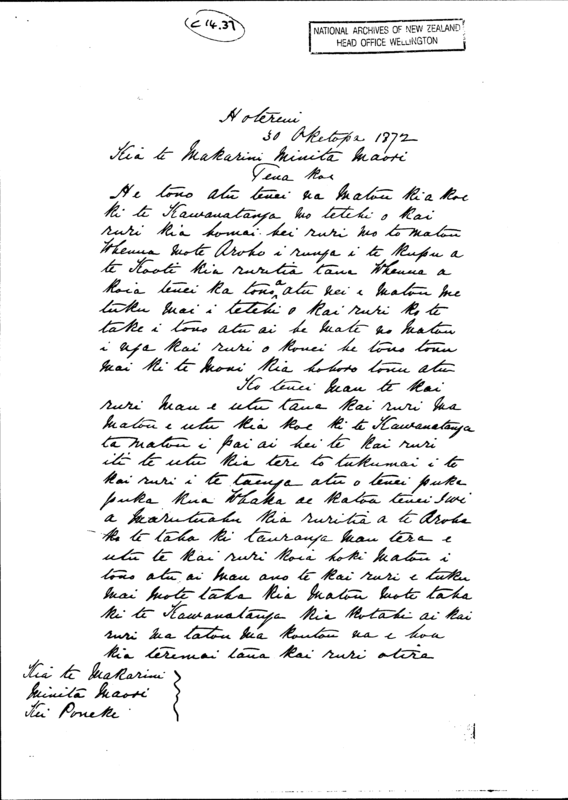 (C 14.37)
NATIONAL ARCHIVES OF NEW ZEALAND
HEAD OFFICE WELLINGTON
Hotereni
30 Oketopa 1872
Kia te Makarini Minita Maori
Tena koe
He tono atu tenei na Matou kia koe
ki te Kawanatanga mo tetehi o kai
ruri kia homai hei ruri mo to matou
Whenua mote Aroho i runga i te kupu a
te Kooti kia ruritia tana Whenua a
koia tenei ka tonoa atu nei e Matou me
tuku mai i tetehi o kai ruri ko te
take i tono atu ai he mate no Matou
i nga kai ruri o konei he tono tonu
mai ki te moni kia hohoro tonu atu
Ko tenei Mau te kai
ruri Mau e utu tana kai ruri Ma
Matou e utu kia koe ki te Kawanatanga
ta Matou i pai ai hei te kai ruri
iti te utu kia tere to tukumai i te
kai ruri i te taenga atu o tenei puka
puka kua Whaka ae katoa tenei Iwi
a Marutuahu kia ruritia a te Aroha
ko te taha ki tauranga Mau tera e
utu te kai ruri koia hoki Matou i
tono atu ai Mau ano te kai ruri e tuku
mai mote taha kia Matou mote taha
ki te Kawanatanga kia kotahi ai kai
ruri Ma tatou Ma koutou na e hoa
kia teremai tana kai ruri otira
Kia te Makarini
Minita Maori
Kei Poneke